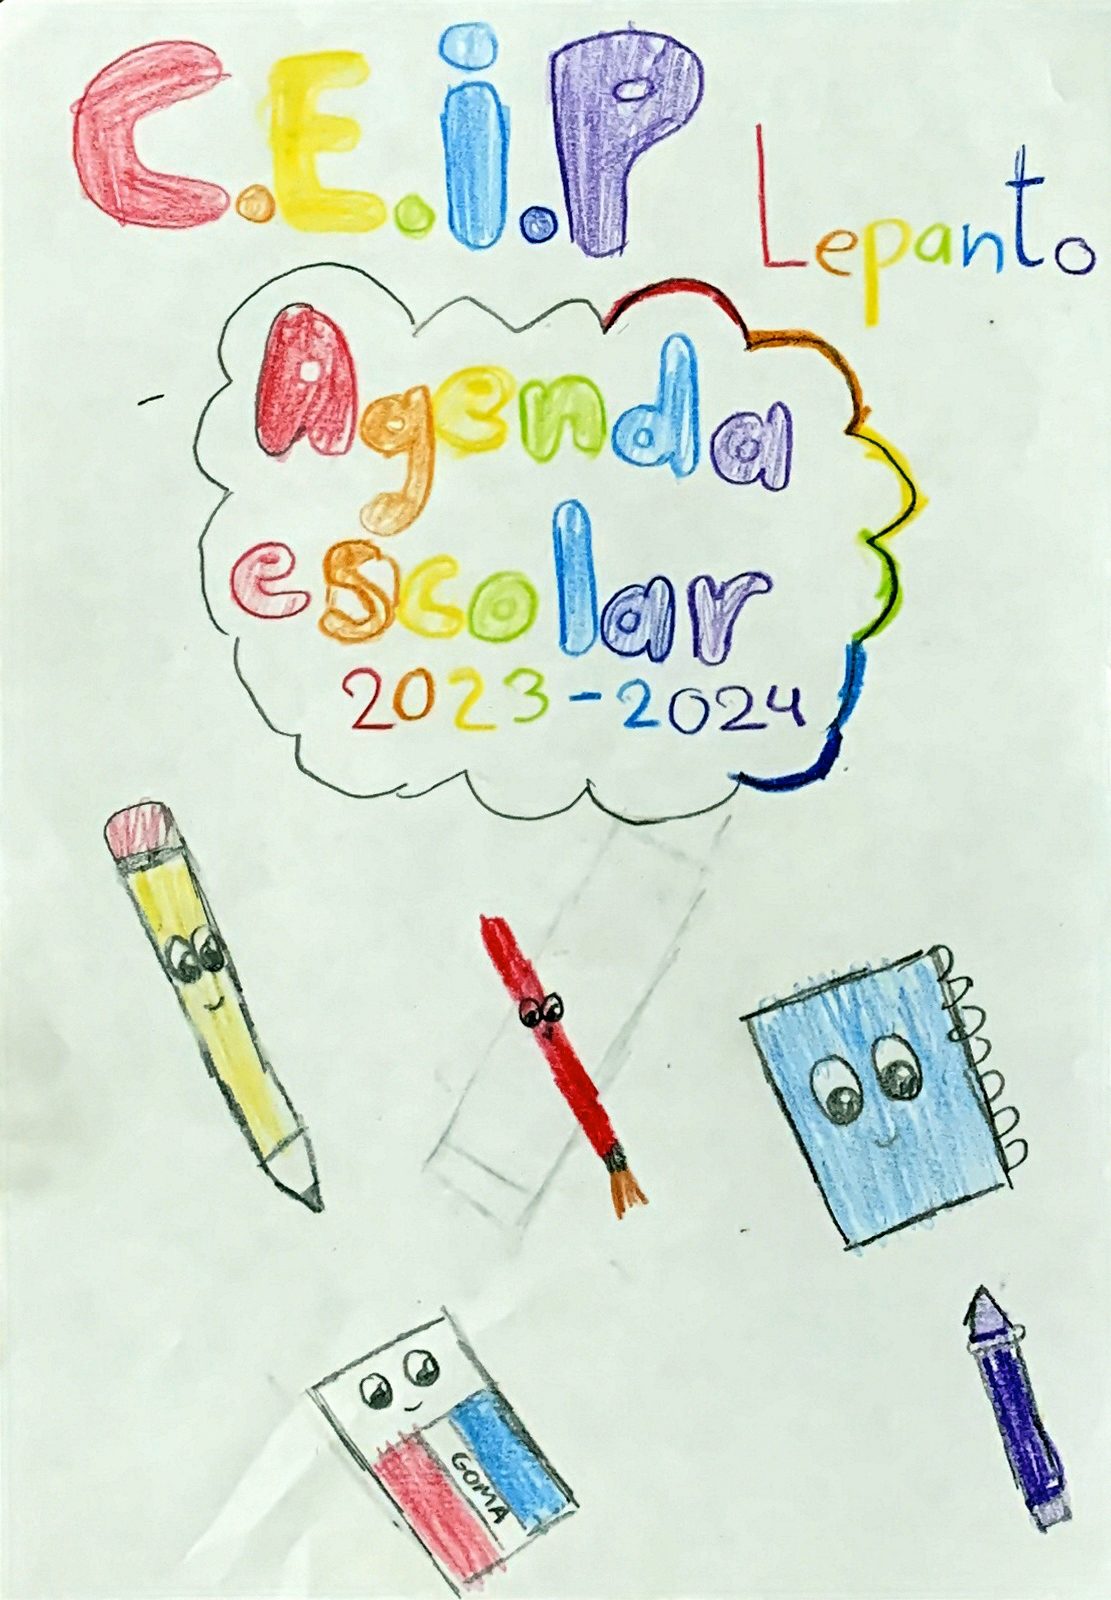 C.E.i.P Lepanto
Agenda
escolar
2023-2024
GOMA